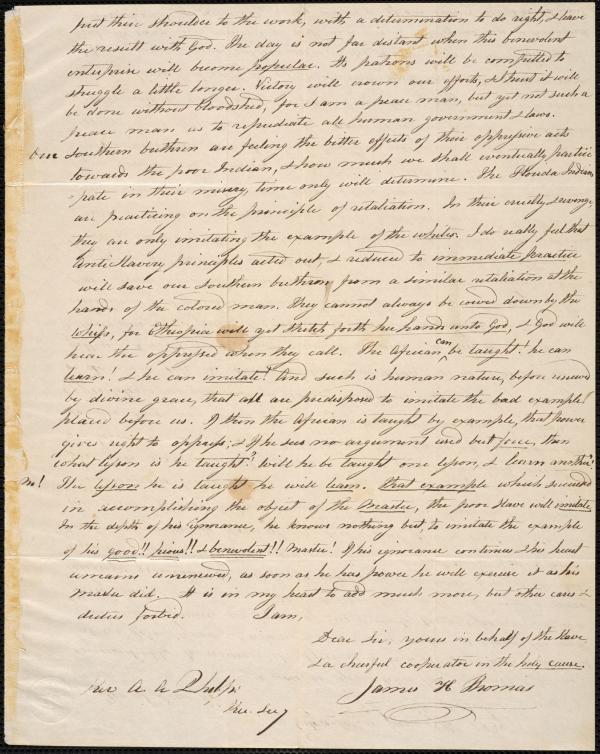 put their shoulder to the work, with a determination to do right, & leave
the result with God. The day is not far distant when this benevolent
enterprise will become popular. Its patrons will be compelled to
struggle a little longer. Victory will crown our efforts, & I trust it will
be done without bloodshed, for I am a peace man, but yet not such a
peace man as to repudiate all human government & laws.
Our Southern brethren are feeling the bitter effects of their oppressive acts
towards the poor Indian, & how much we shall eventually partici
-pate in their misery, time only will determine. The Florida Indians,
are practicing on the principle of retaliation. In their cruelty & revenge,
they are only imitating the example of the whites. I do really feel that
antiSlavery principles acted out, & reduced to immediate practice
will save our Southern brethren from a similar retaliation at the
hands of the colored man. They cannot always be cowed down by the
Whip, for Ethiopia will yet stretch forth her hands unto God, & God will
hear the oppressed when they call. The African can be taught! he can
learn! & he can imitate! And such is human nature, before renewed
by divine grace, that all are predisposed to imitate the bad example!
placed before us. If then the African is taught by example, that power
gives right to oppress; & if he sees no argument used but force, then
what lesson is he taught? will he be taught one lesson, & learn another?
No! The lesson he is taught he will learn. that example which succeeded
in accomplishing the object of the Master, the poor Slave will imitate.
In the depth of his ignorance, he knows nothing but to imitate the example
of his good!! pious!! & benevolent!! Master! If his ignorance continues & his heart
remains unrenewed, as soon as he has power he will exercise it as his
Master did. It is in my heart to add much more, but other cares &
duties forbid. I am,
Dear Sir, yours in behalf of the Slave
& a cheerful cooperator in the holy cause.
Rev A. A Phelps James H Thomas
Rec. Secy